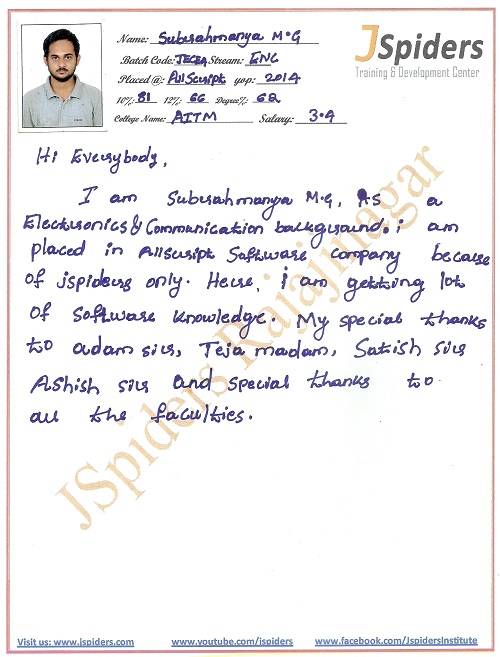 Name: Subrahmanya M.G
Batch Code: JECEA Stream: ENC
Placed @: AllScript yop: 2014
10%: 81 12%: 66 Degree%: 62
College Name: AITM Salary: 3.4
JSpiders
Training & Development Center
Hi Everybody,
I am Subrahmanya M.G, As a
Electronics & Communication background. i am
placed in Allscript Software company because
of jspiders only. Here, i am getting lot
of software knowledge. My special thanks
to adam sir, Teja madam, Satish sir
Ashish sir and special thanks to
all the faculties.
JSpiders Rajajinagar
Visit us: www.jspiders.com www.youtube.com/jspiders www.facebook.com/JspidersInstitute